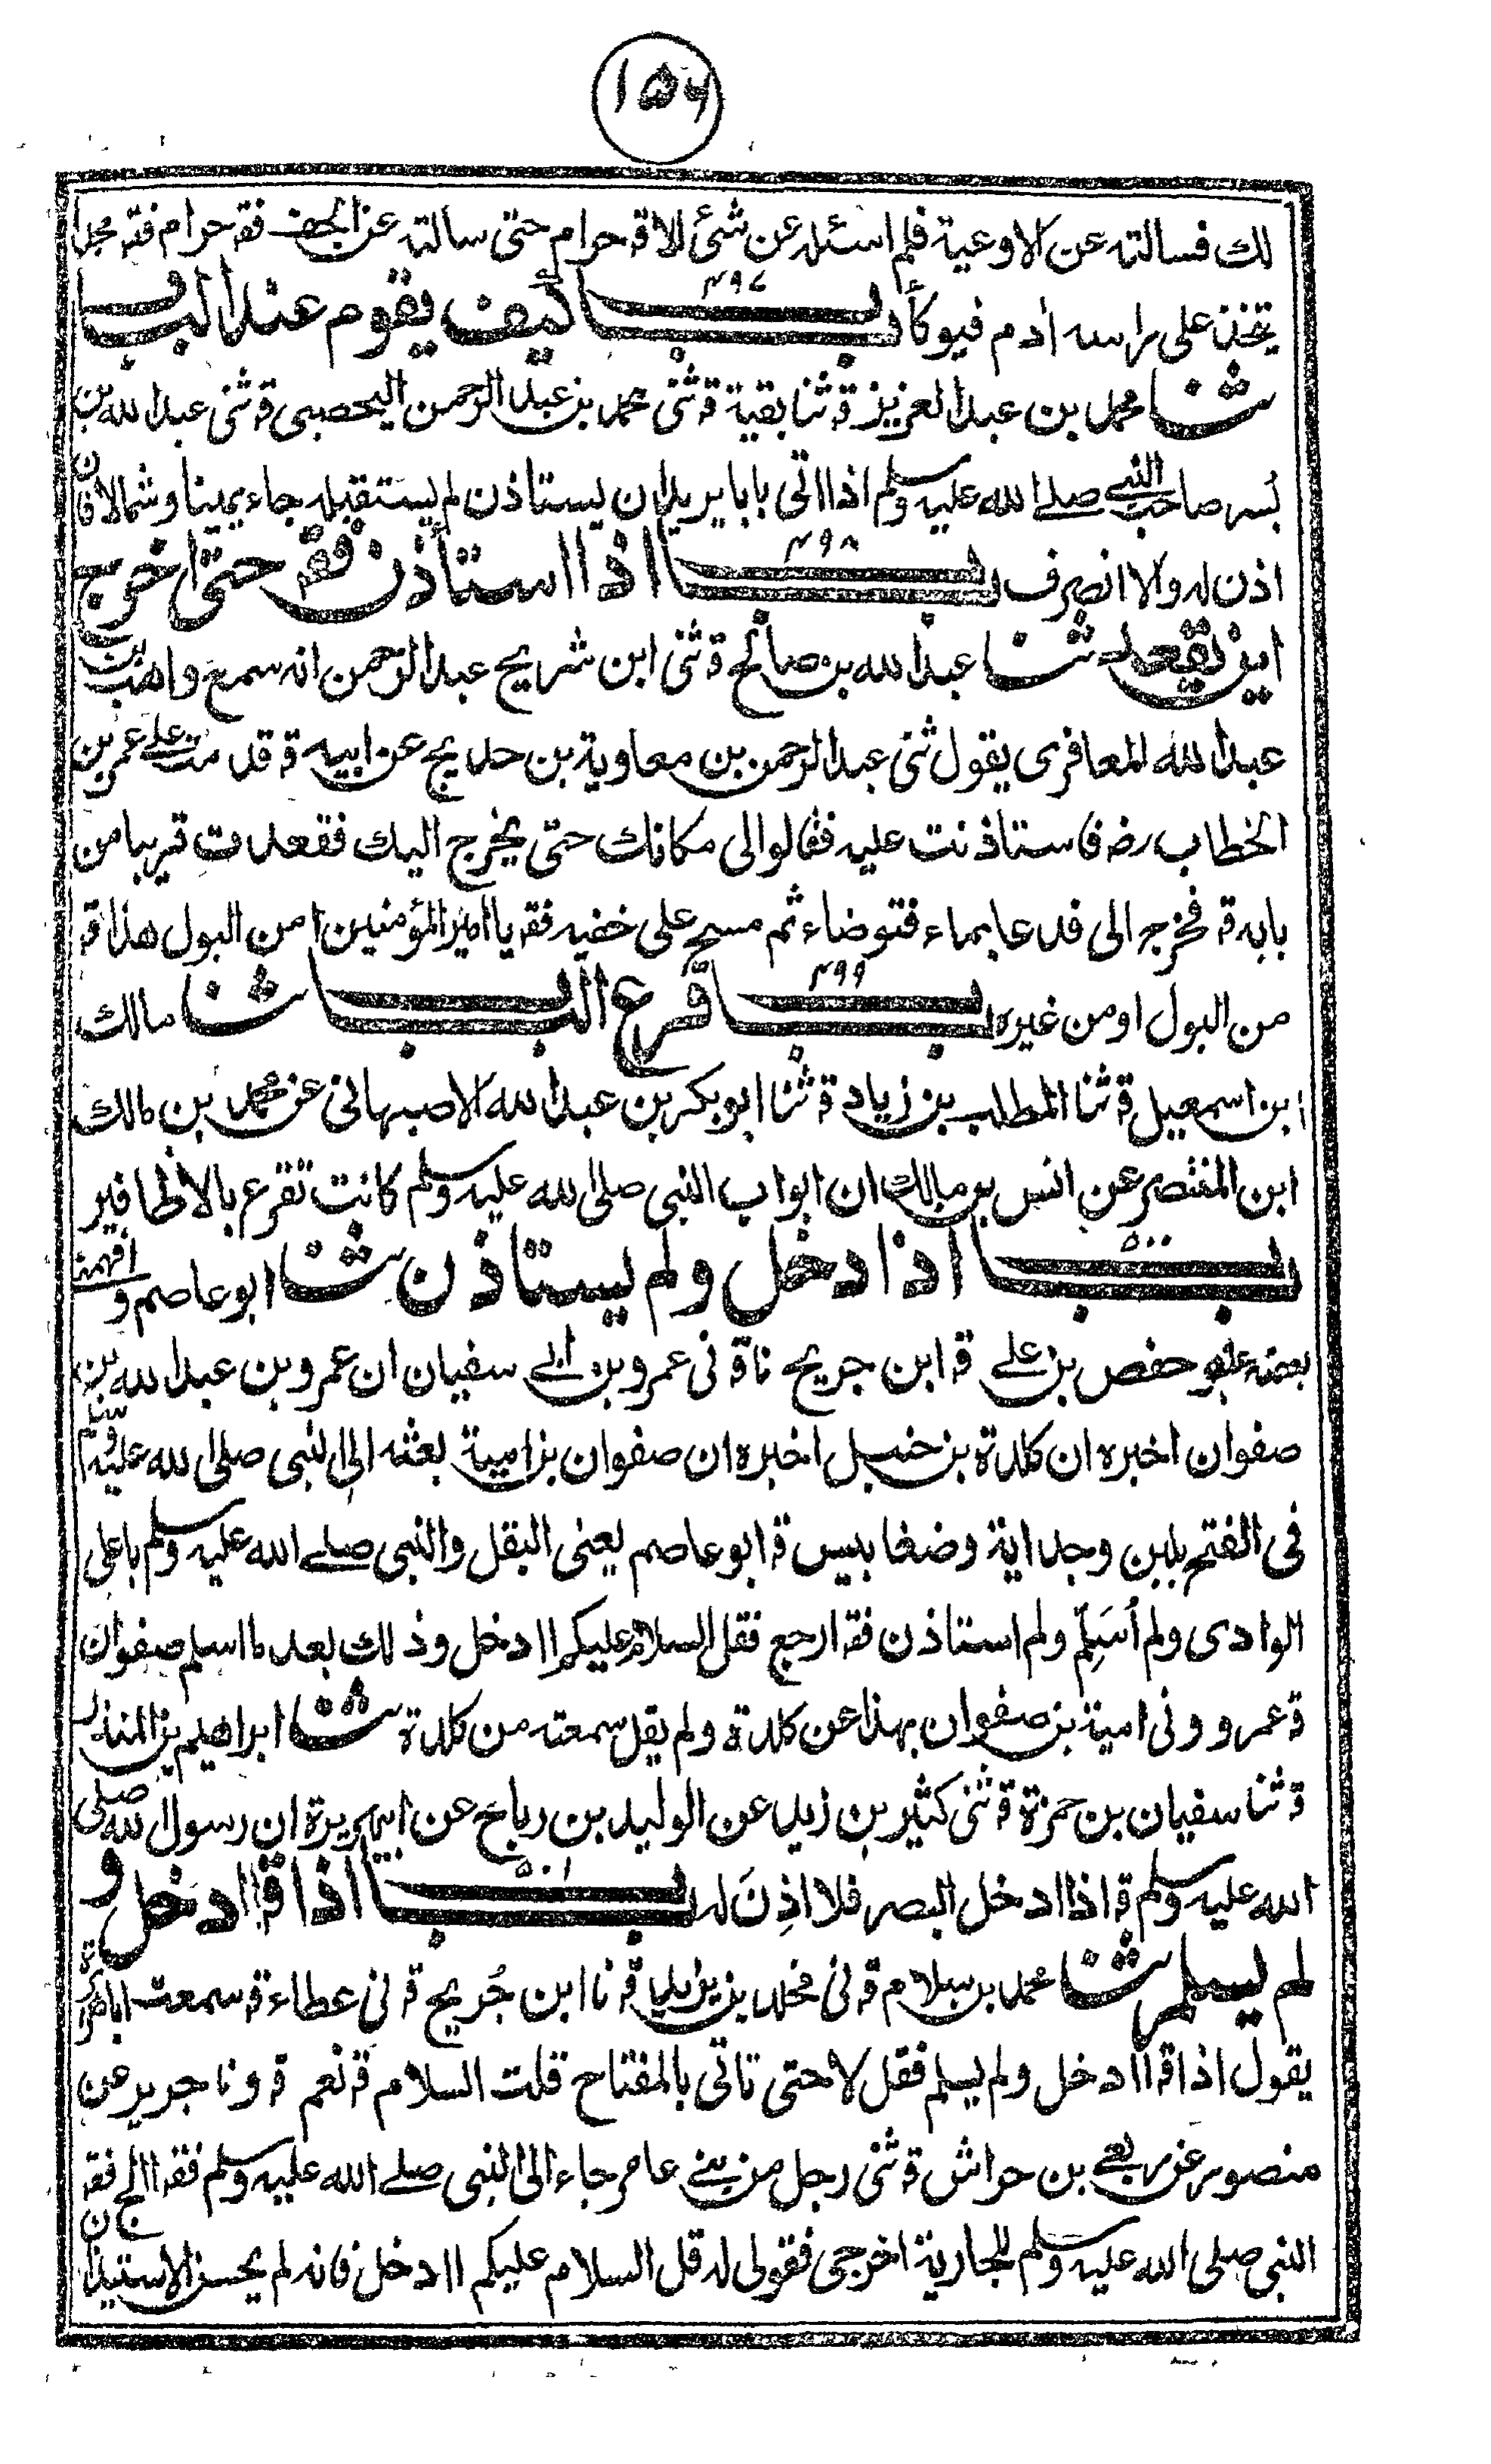 ١٥٦
لك فسالته عن الاوعية فلم اسئله عن شئ الا قه حرام حتى سالته عن الجف فقه حرام فقه محمد
يتخذ على راسه ادم فيوكأ ٤٩٧ باب كيف يقوم عند الباب
ثنا محمد بن عبد العزيز قه ثنا بقية قه ثنى محمد بن عبد الرحمن اليحصبى قه ثنى عبد الله بن
بسر صاحب النبي صلے الله عليه وسلم اذا اتى بابا يريد ان يستاذن لم يستقبله جاء يمينا وشمالا فان
اذن له والا انصرف ٤٩٨ باب اذا استأذن فقه حتى اخرج
اين تقعد ثنا عبد الله بن صالح قه ثنى ابن شريح عبد الرحمن انه سمع واهب بن
عبد الله المعافرى يقول ثنى عبد الرحمن بن معاوية بن حديج عن ابيه قه قدمت على عمر بن
الخطاب رضـ فاستاذنت عليه فقالوا لى مكانك حتى يخرج اليك فقعدت قريبا من
بابه قه فخرج الى فدعا بماء فتوضاء ثم مسح على خفيه فقه يا امير المؤمنين امن البول هذا قه
من البول او من غيره ٤٩٩ باب قرع الباب ثنا مالك
ابن اسمعيل قه ثنا المطلب بن زياد قه ثنا ابو بكر بن عبد الله الاصبهانى عن محمد بن مالك
ابن المنتصر عن انس بن مالك ان ابواب النبي صلى الله عليه وسلم كانت تقرع بالاظافير
٥٠٠ باب اذا دخل ولم يستاذن ثنا ابو عاصم و افهمنى
بعضه عنه حفص بن علے قه ابن جريح نا قه نى عمرو بن ابى سفيان ان عمرو بن عبد الله بن
صفوان اخبره ان كلدة بن حنبل اخبره ان صفوان بن امية بعثه الى النبي صلى الله عليه وسلم
فى الفتح بلبن وجداية وضغابيس قه ابو عاصم يعنى البقل والنبي صلے الله عليه وسلم باعلى
الوادى ولم أسَلِّم ولم استاذن فقه ارجع فقل السلام عليكم اادخل وذلك بعد ما اسلم صفوان
قه عمرو ونى امية بن صفوان بهذا عن كلدة ولم يقل سمعته من كلدة ثنا ابراهيم بن المنذر
قه ثنا سفيان بن حمزة قه ثنى كثير بن زيد عن الوليد بن رباح عن ابيهريرة ان رسول الله صلى
الله عليه وسلم قه اذا ادخل البصر فلا اذِنَ له ٥٠١ باب اذا قه اادخل و
لم يسلم ثنا محمد بن سلام قه نى مخلد بن يزيد قه نا ابن جُريح قه نى عطاء قه سمعت اباهريرة
يقول اذا قه اادخل ولم يسلم فقل لا حتى تاتى بالمفتاح قلت السلام قه نعم قه ونا جرير عن
منصور عن ربعے بن حراش قه ثنى رجل من بنے عامر جاء الى النبي صلے الله عليه وسلم فقه االج فقه
النبي صلى الله عليه وسلم للجارية اخرجى فقولى له قل السلام عليكم اادخل فانه لم يحسن الاستيذان